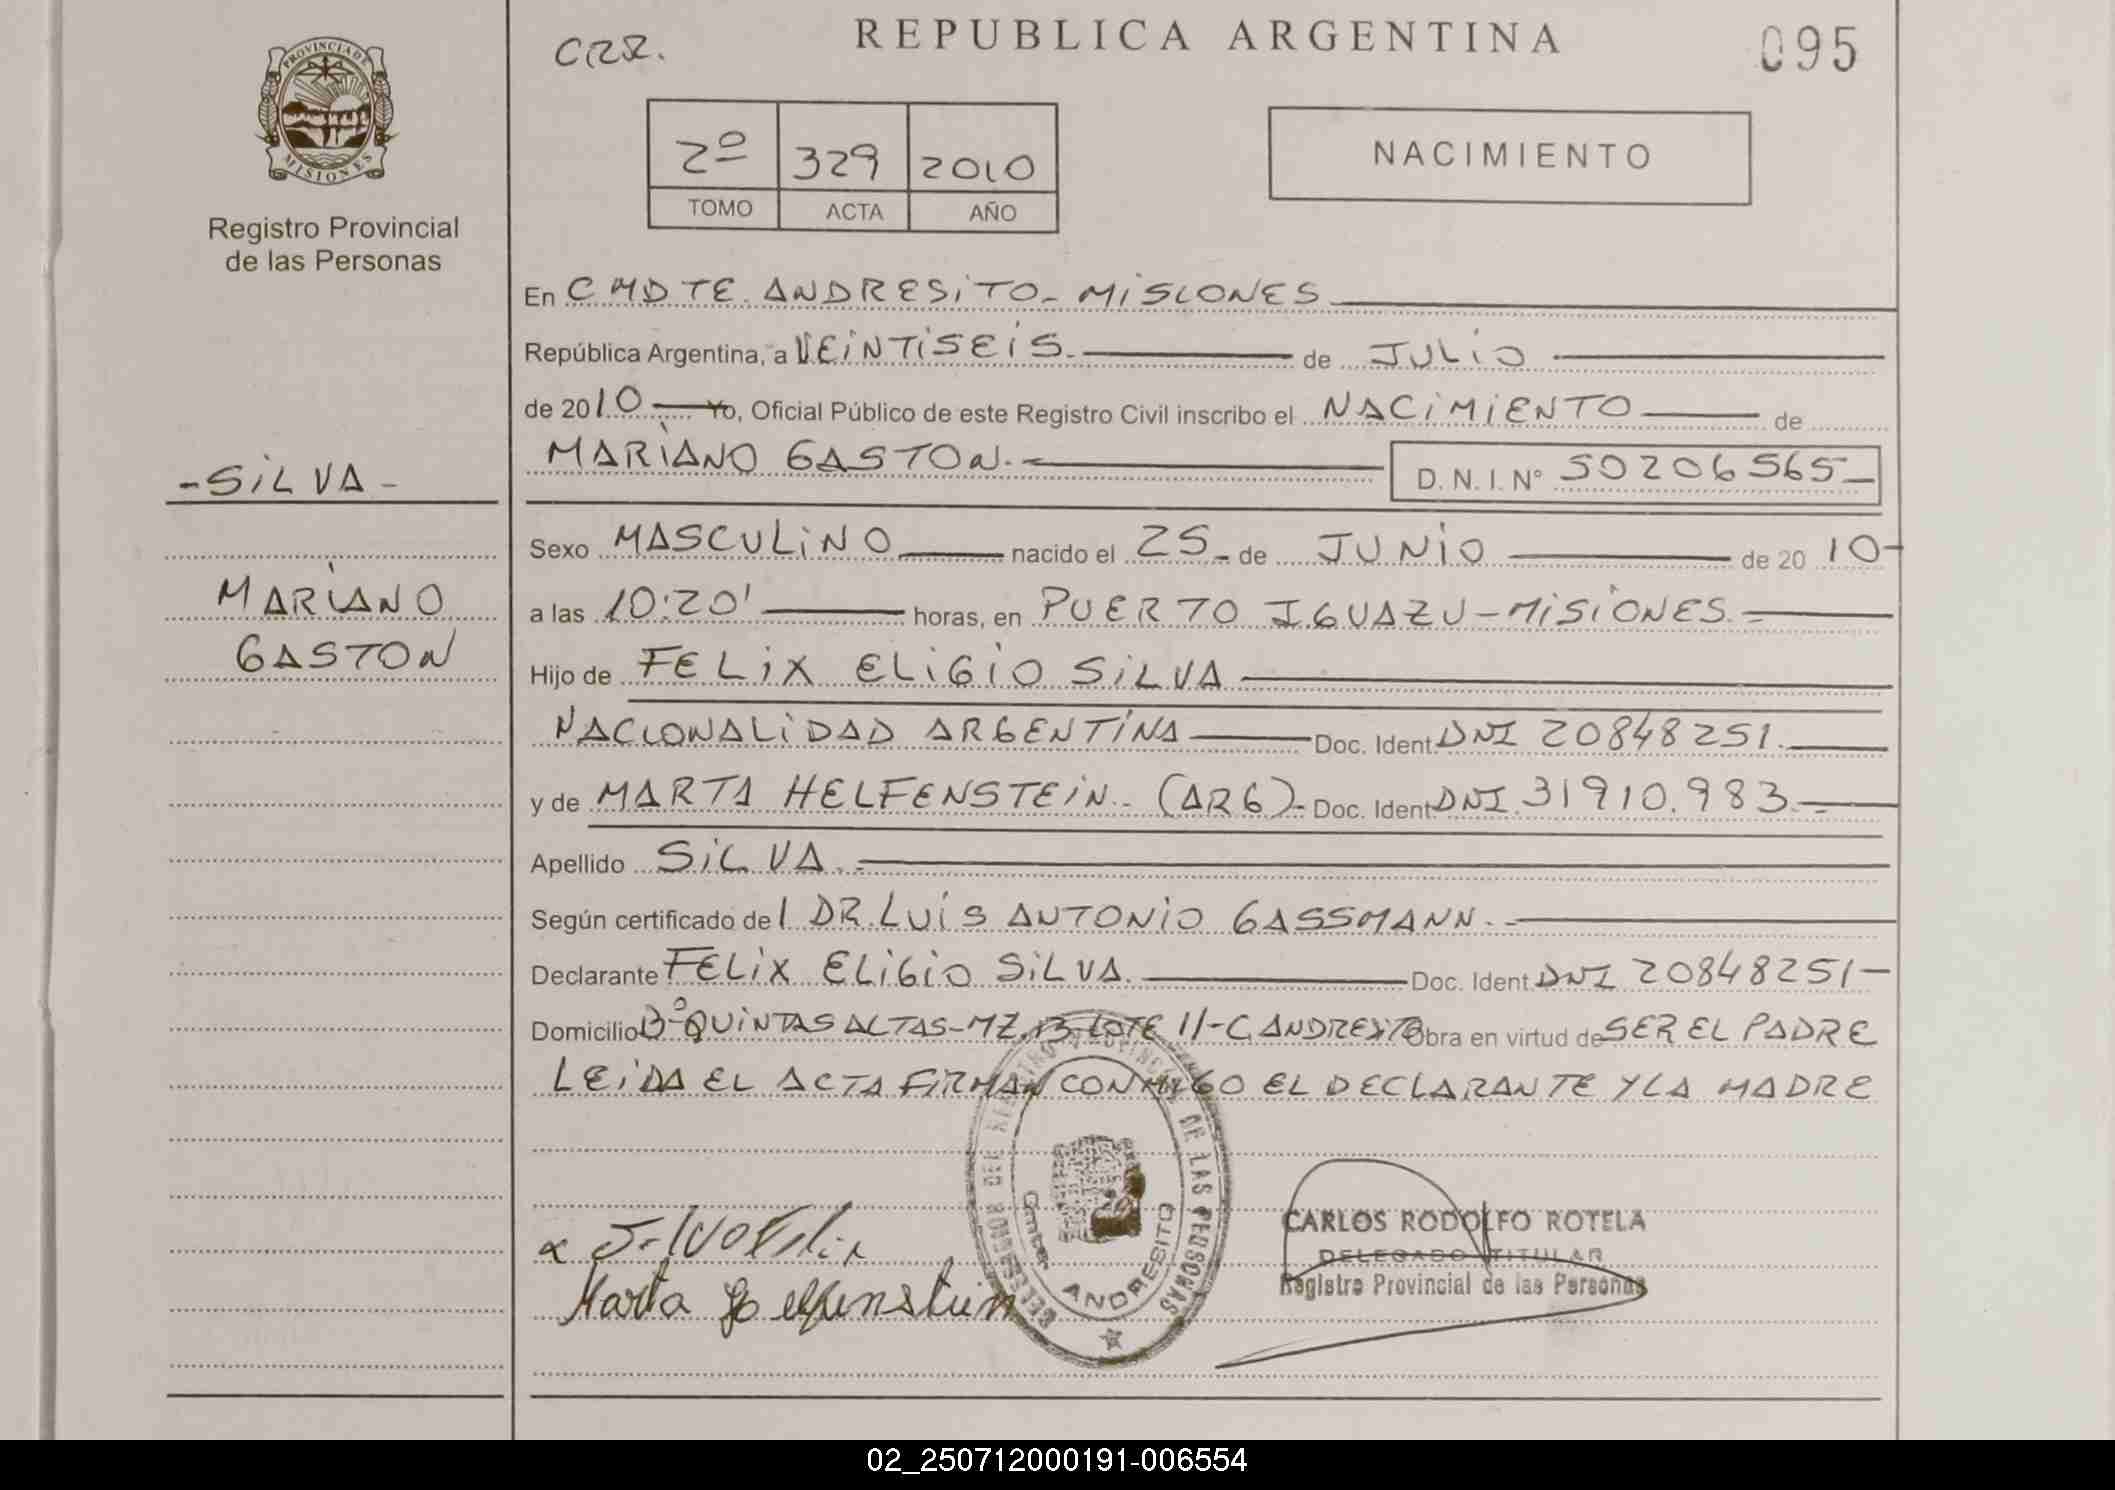 CRR.
REPUBLICA ARGENTINA
095
PROVINCIA DE
MISIONES
Registro Provincial
de las Personas
2º 329 2010
TOMO ACTA AÑO
NACIMIENTO
En CMDTE. ANDRESITO - MISIONES
República Argentina, a VEINTISEIS. de JULIO
de 2010 Yo, Oficial Público de este Registro Civil inscribo el NACIMIENTO de
MARIANO GASTON. D. N. I. Nº 50206565
- SILVA -
MARIANO
GASTON
Sexo MASCULINO nacido el 25 de JUNIO de 2010
a las 10:20' horas, en PUERTO IGUAZU - MISIONES.
Hijo de FELIX ELIGIO SILVA
NACIONALIDAD ARGENTINA Doc. Ident. DNI 20848251.
y de MARTA HELFENSTEIN. (ARG) Doc. Ident. DNI 31910.983.
Apellido SILVA.
Según certificado del DR. LUIS ANTONIO GASSMANN.
Declarante FELIX ELIGIO SILVA. Doc. Ident. DNI 20848251
Domicilio Bº QUINTAS ALTAS - MZ. 13 LOTE 11 - C. ANDRESITO Obra en virtud de SER EL PADRE
LEIDA EL ACTA FIRMAN CONMIGO EL DECLARANTE Y LA MADRE
Marta Helfenstein
DE LAS PERSONAS
Cmte. ANDRESITO
CARLOS RODOLFO ROTELA
DELEGADO TITULAR
Registro Provincial de las Personas
02_250712000191-006554